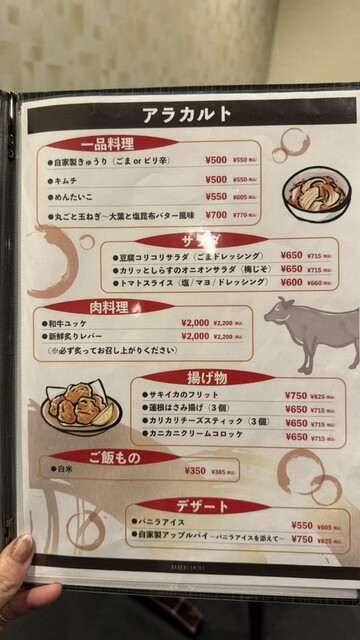 アラカルト
一品料理
●自家製きゅうり（ごま or ピリ辛） ¥500 ¥550（税込）
●キムチ ¥500 ¥550（税込）
●めんたいこ ¥550 ¥605（税込）
●丸ごと玉ねぎ～大葉と塩昆布バター風味 ¥700 ¥770（税込）
サラダ
●豆腐コリコリサラダ（ごまドレッシング） ¥650 ¥715（税込）
●カリッとしらすのオニオンサラダ（梅じそ） ¥650 ¥715（税込）
●トマトスライス（塩/マヨ/ドレッシング） ¥600 ¥660（税込）
肉料理
●和牛ユッケ ¥2,000 ¥2,200（税込）
●新鮮炙りレバー ¥2,000 ¥2,200（税込）
（※必ず炙ってお召し上がりください）
揚げ物
●サキイカのフリット ¥750 ¥825（税込）
●蓮根はさみ揚げ（3個） ¥650 ¥715（税込）
●カリカリチーズスティック（3個） ¥650 ¥715（税込）
●カニカニクリームコロッケ ¥650 ¥715（税込）
ご飯もの
●白米 ¥350 ¥385（税込）
デザート
●バニラアイス ¥550 ¥605（税込）
●自家製アップルパイ～バニラアイスを添えて～ ¥750 ¥825（税込）